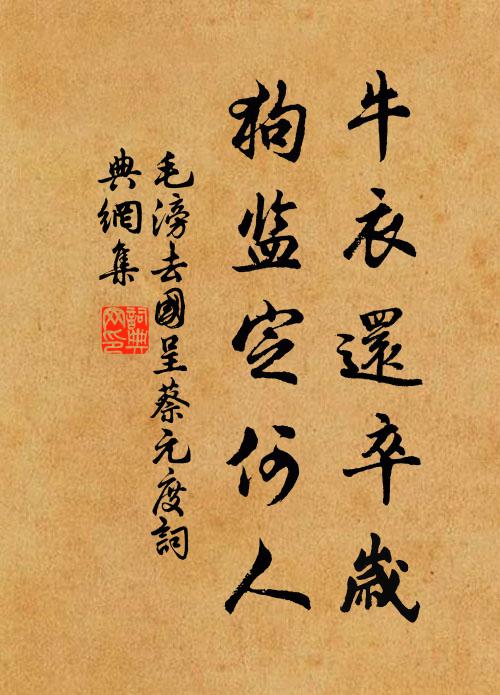 牛衣還卒歲
狗监定何人
毛滂去國呈蔡元度詞
典網集
詞典
网印